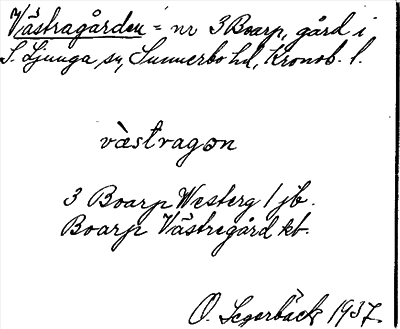 Västragården = nr 3 Boarp, gård i
S. Ljunga sn, Sunnerbo hd, Kronob. l.
västragon
3 Boarp Westerg / jb.
Boarp Västregård kb.
O. Segerbäck 1937.